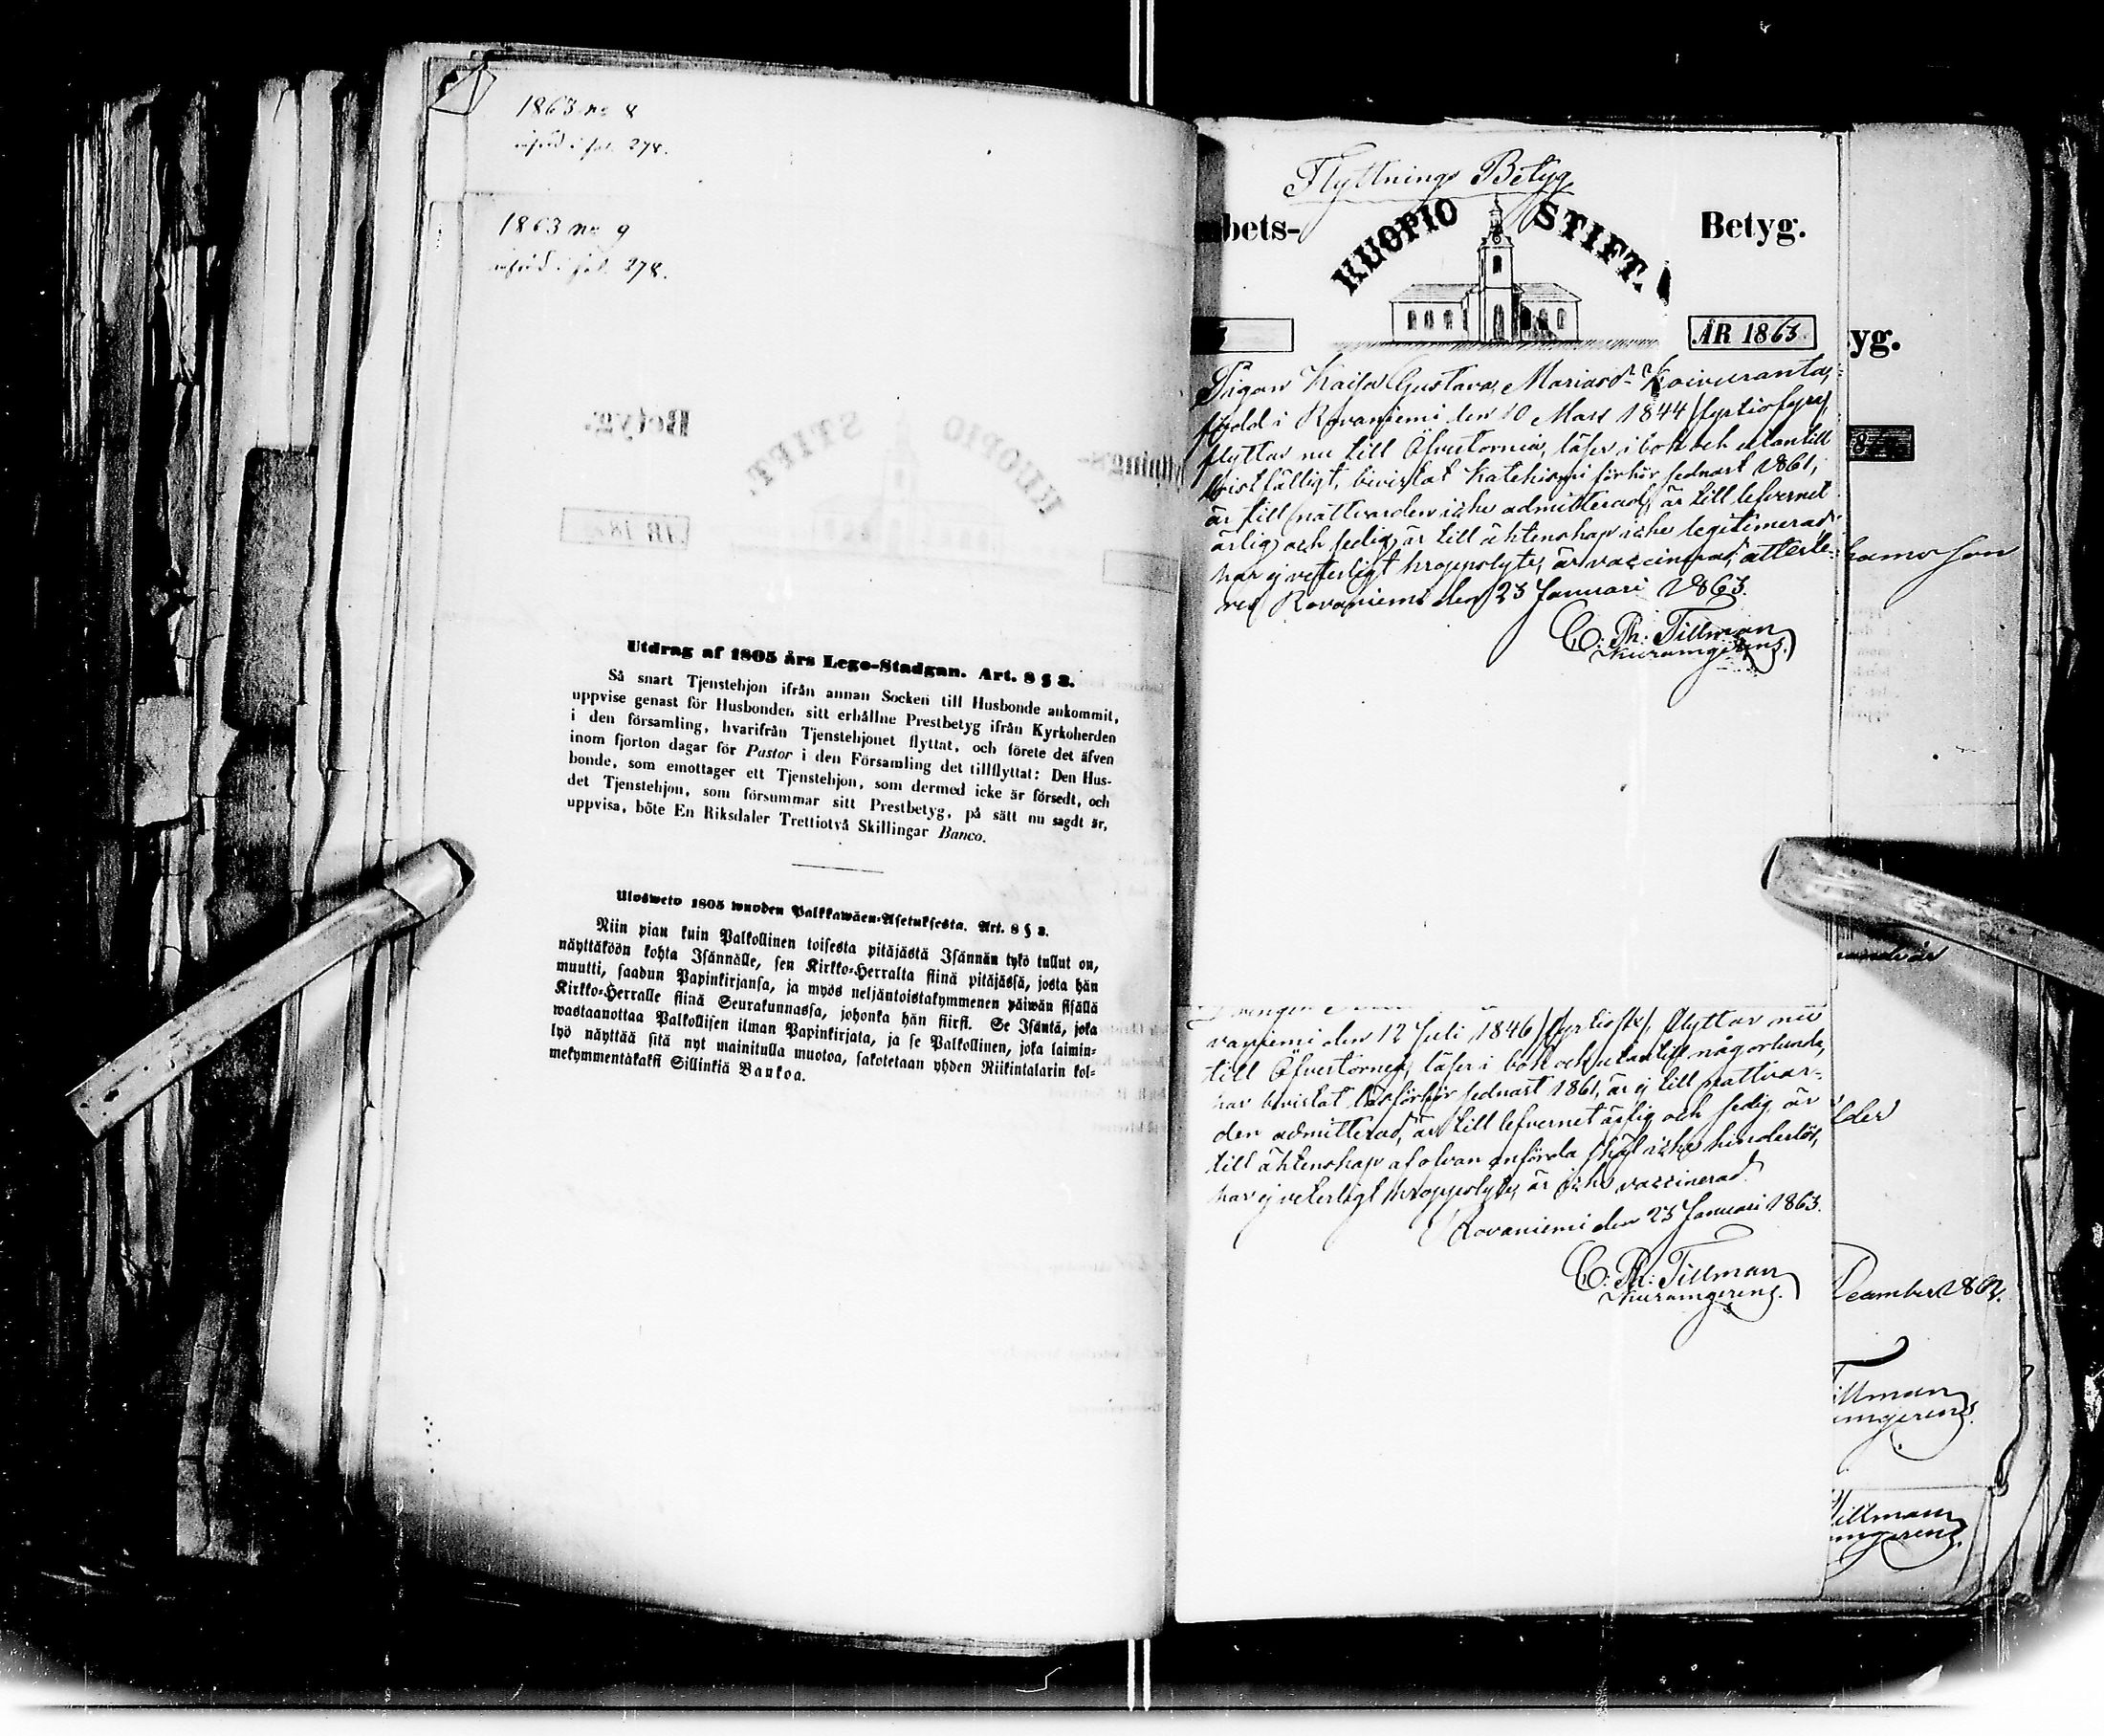 1863 no 8
införd i fol. 278.
1863 no 9
införd i fol. 278.
Utdrag af 1805 års Lego-Stadgan. Art. 8 § 3.
Så snart Tjenstehjon ifrån annan Socken till Husbonde ankommit,
uppvise genast för Husbonden sitt erhållne Prestbetyg ifrån Kyrkoherden
i den församling, hvarifrån Tjenstehjonet flyttat, och förete det äfven
inom fjorton dagar för Pastor i den Församling det tillflyttat: Den Hus-
bonde, som emottager ett Tjenstehjon, som dermed icke är försedt, och
det Tjenstehjon, som försummar sitt Prestbetyg, på sätt nu sagdt är,
uppvisa, böte En Riksdaler Trettiotvå Skillingar Banco.
Ulosweto 1805 wuoden Palkkawäen-Asetuksesta. Art. 8 § 3.
Niin pian kuin Palkollinen toisesta pitäjästä Isännän tykö tullut on,
näyttäköön kohta Isännälle, sen Kirkko-Herralta siinä pitäjässä, josta hän
muutti, saadun Papinkirjansa, ja myös neljäntoistakymmenen päiwän sisällä
Kirkko-Herralle siinä Seurakunnassa, johonka hän siirsi. Se Isäntä, joka
wastaanottaa Palkollisen ilman Papinkirjata, ja se Palkollinen, joka laimin-
lyö näyttää sitä nyt mainitulla muotoa, sakotetaan yhden Riikintalarin kol-
mekymmentäkaksi Sillinkiä Bankoa.
Flyttnings Betyg
bets- KUOPIO STIFT. Betyg.
ÅR 1863
Pigan Kaisa Gustava Mariasdr Koivuranta,
född i Rovaniemi den 10 Mars 1844 /fyrtiofyra/,
flyttar nu till Öfvertorneå, läser i bok och utantill
bristfälligt, bevistat Katekismi förhör sednast 1861,
är till nattvarden icke admitterad, är till lefvernet
ärlig och sedig, är till äktenskap icke legitimerad
har ej veterligt kroppslyte, är vaccinerad, atteste-
res Rovaniemi den 23 Januari 1863.
C. Th. Tillman
Kuramgerens.
vaniemi den 12 Juli 1846 /fyrtiosex/, flyttar nu
till Öfvertorneå, läser i bok och utantill någorlunda,
har bevistat läsförhör sednast 1861, är ej till nattvar-
den admitterad, är till lefvernet ärlig och sedig, är
till äktenskap af ofvan anförda skäl icke hinderlös,
har ej veterligt kroppslyte, är icke vaccinerad.
Rovaniemi den 23 Januari 1863.
C. Th. Tillman
Kuramgerens.
yg.
son
lder
December 1862.
Tillman
mgerens.
Tillman
mgerens.